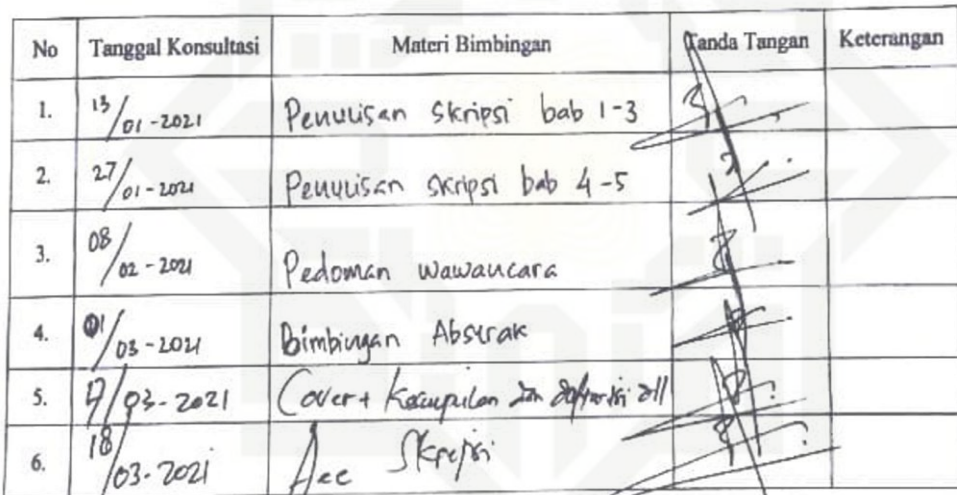 No Tanggal Konsultasi Materi Bimbingan Tanda Tangan Keterangan
1. 13/01-2021 Penulisan skripsi bab 1-3
2. 27/01-2021 Penulisan skripsi bab 4-5
3. 08/02-2021 Pedoman wawancara
4. 01/03-2021 Bimbingan Abstrak
5. 17/03-2021 Cover + Kesimpulan dan dll
6. 18/03-2021 Acc Skripsi